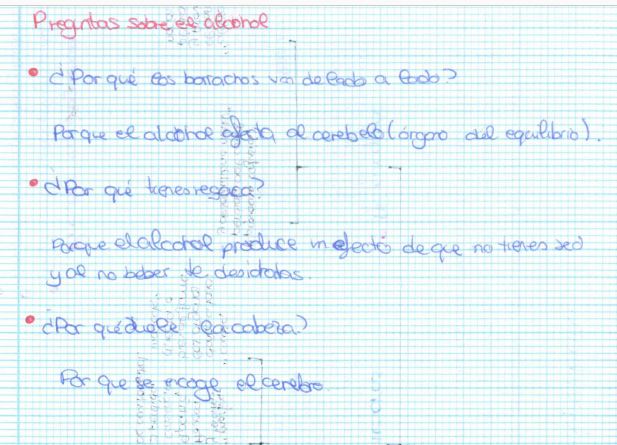 Pregntas sobre el alcohol
¿Por qué los barachos van de lado a lado?
Porque el alcohol afecta al cerebelo (órgano del equilibrio).
¿Por qué tienes resaca?
Porque el alcohol produce un efecto de que no tienes sed
y al no beber te desidratas.
¿Por qué duele la cabeza?
Por que se encoge el cerebro.